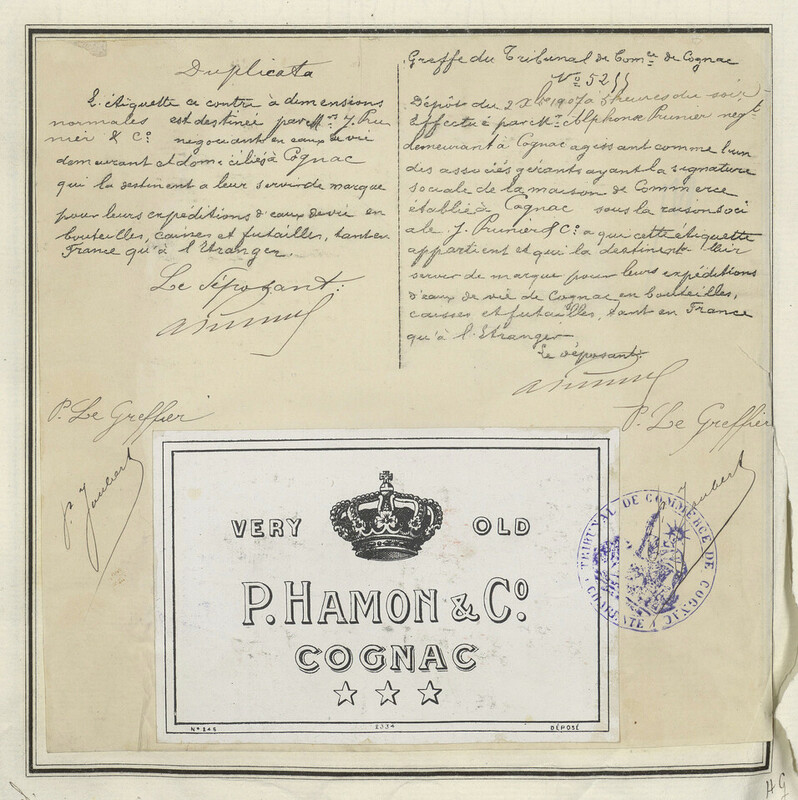 Duplicata
L'étiquette ci contre à dimensions
normales est destinée par Mrs J. Pru-
nier & Co. négociants en eaux de vie
demeurant et domiciliés à Cognac
qui la destinent a leur servir de marque
pour leurs expéditions d'eaux de vie en
bouteilles, caisses et futailles, tant en
France qu'à l'Etranger.
Le Déposant:
P. Le Greffier
P. Joubert
Greffe du Tribunal de Comce de Cognac
No 5211
Dépôt du 2 Xbre 1907 à heures du soir
Effectué par Mr Alphonse Prunier négt
demeurant à Cognac agissant comme l'un
des associés gérants ayant la signature
sociale de la maison de Commerce
établie à Cognac sous la raison soci
ale J. Prunier & Co. a qui cette étiquette
appartient et qui la destinent leur
servir de marque pour leurs expéditions
d'eaux de vie de Cognac en bouteilles,
caisses et futailles, tant en France
qu'à l'Etranger
Le déposant:
P. Le Greffier
Joubert
VERY OLD
P. HAMON & Co.
COGNAC
No 245 2334 DÉPOSÉ
TRIBUNAL DE COMMERCE DE COGNAC
CHARENTE
HG